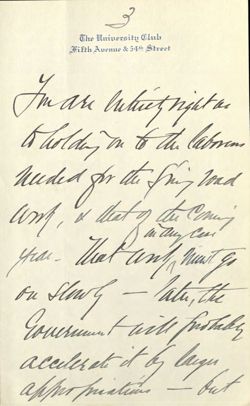 3
The University Club
Fifth Avenue & 54th Street
You are entirely right as
to holding on to the laborers
needed for the Spring road
work, & that of the coming
year. That work, in any case must go
on slowly — later, the
Government will probably
accelerate it by larger
appropriations — but